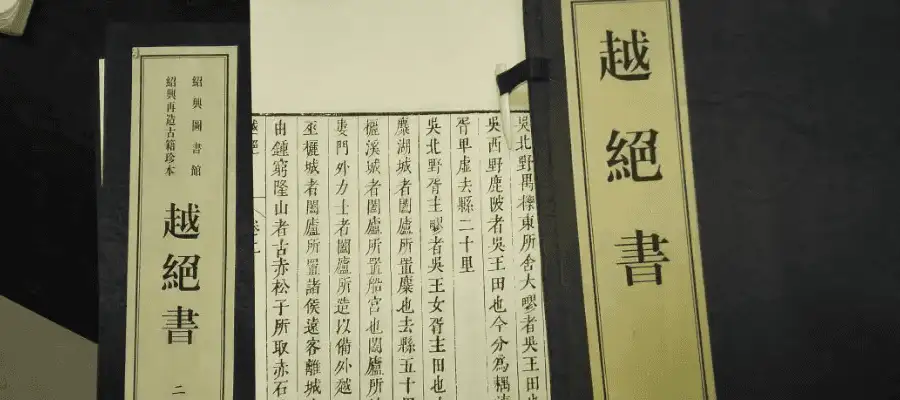 越絕書
吳北野禺櫟東所舍大疁者吳王田也
吳西野鹿陂者吳王田也今分為耦
胥卑虛去縣二十里
吳北野胥主疁者吳王女胥主田也
麋湖城者闔廬所置麋也去縣五十里
欐溪城者闔廬所置船宮也闔廬所
婁門外力士者闔廬所造以備外越
巫欐城者闔廬所置諸侯遠客離城
由鍾窮隆山者古赤松子所取赤石
紹興圖書館
紹興再造古籍珍本
越絕書
二